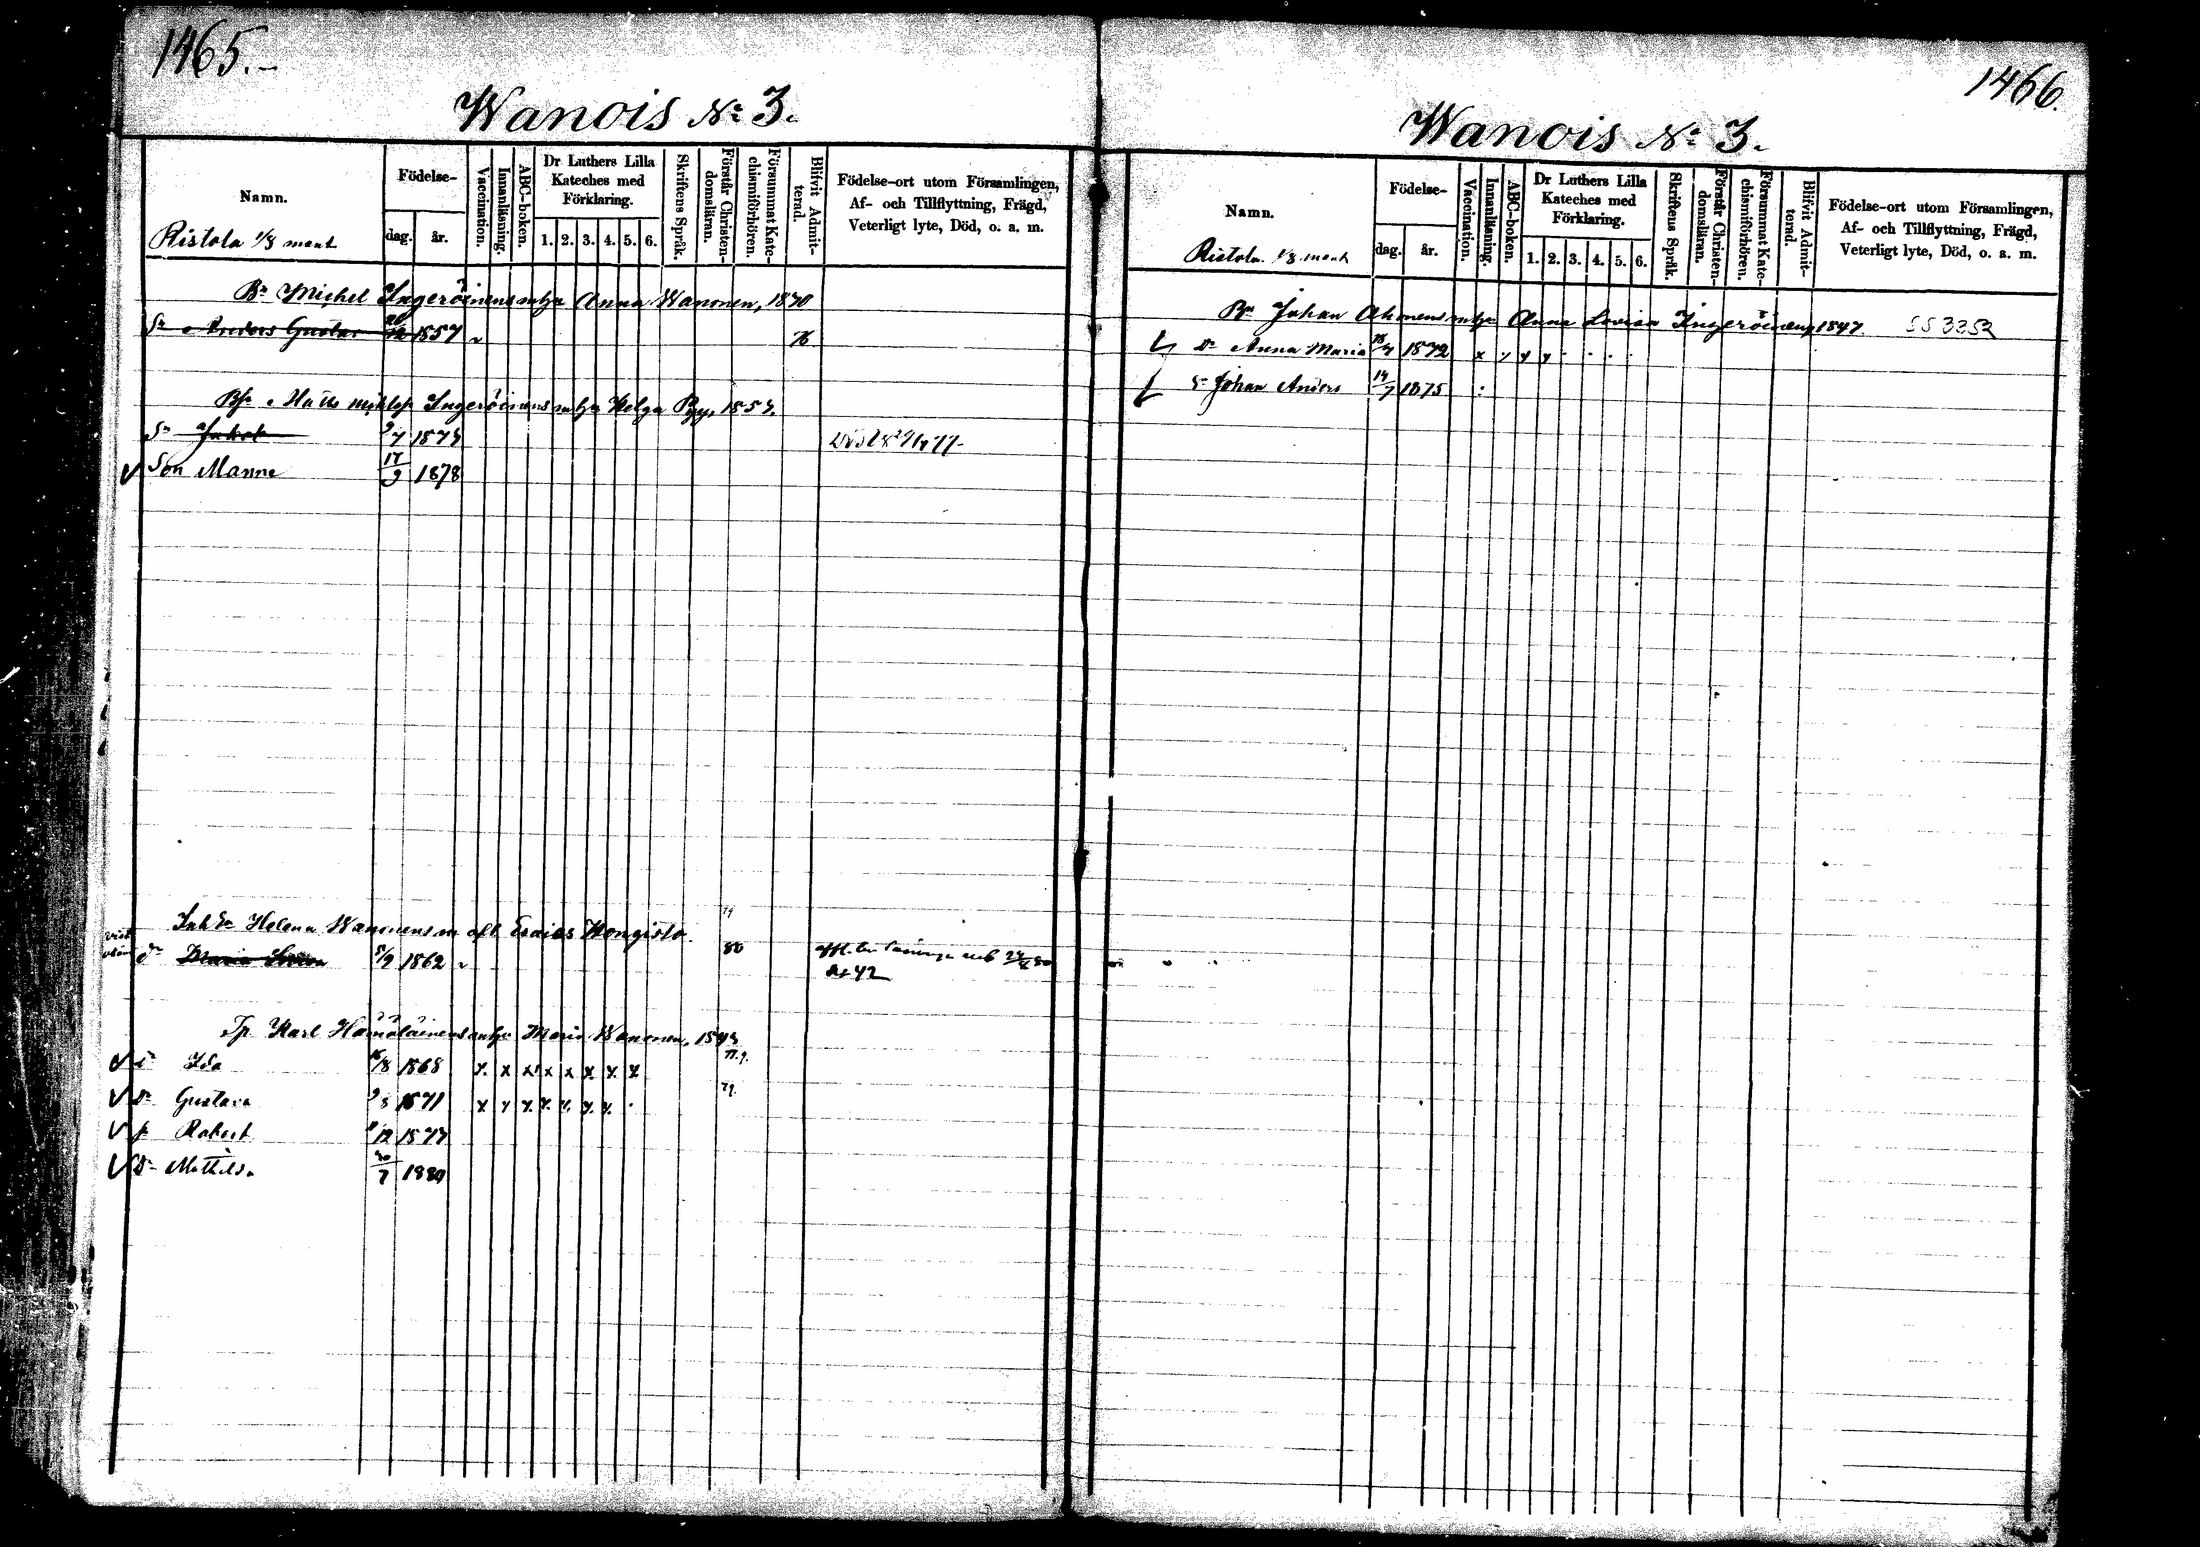 1465.
Wanois No 3.
Namn.
Födelse-
dag. år.
Vaccination.
Innanläsning.
ABC-boken.
Dr Luthers Lilla
Kateches med
Förklaring.
1. 2. 3. 4. 5. 6.
Skriftens Språk.
Förstår Christen-
domsläran.
Försummat Kate-
chismiförhören.
Blifvit Admit-
terad.
Födelse-ort utom Församlingen,
Af- och Tillflyttning, Frägd,
Veterligt lyte, Död, o. a. m.
Ristola 1/8 mant
Bn Michel Ingeröinens Anna Wanonen, 1870
Sn Anders Gustav 1857
Matts Ingeröinens Helga Pyy, 1857.
Sn Jakob 9/7 1877
Son Manne 17/9 1878
Helena Wanonens Esaias Kongisto.
Maria Lovisa 5/9 1862 80
Karl Hämäläinens Maria Wanonen, 1843
Ida 16/8 1868 x x x x x x x x
Dr Gustava 9/8 1871 x x x x x x x 79.
Robert 1877
Dr Mathilda 30/7 1880
1466.
Wanois No 3.
Namn.
Födelse-
dag. år.
Vaccination.
Innanläsning.
ABC-boken.
Dr Luthers Lilla
Kateches med
Förklaring.
1. 2. 3. 4. 5. 6.
Skriftens Språk.
Förstår Christen-
domsläran.
Försummat Kate-
chismiförhören.
Blifvit Admit-
terad.
Födelse-ort utom Församlingen,
Af- och Tillflyttning, Frägd,
Veterligt lyte, Död, o. a. m.
Ristola. 1/8 mant
Bn Johan Ahonens Anna Lovisa Ingeröinen, 1847. SS 3352
Dr Anna Maria 18/7 1872 x x x x
Sn Johan Anders 14/7 1875